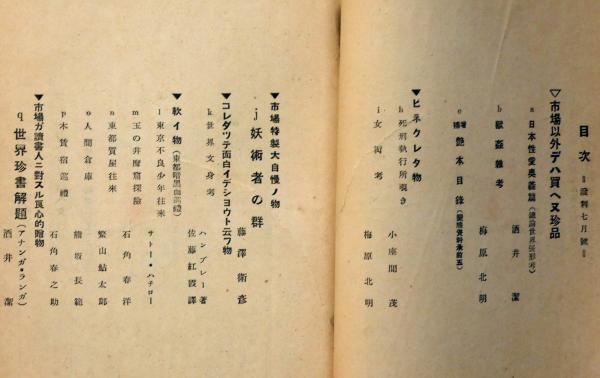 目次 ＝歳刺七月號＝
▽市場以外デハ買ヘヌ珍品
a 日本性愛奥義篇
酒井潔
b 獣姦雜考
梅原北明
c 艶本目錄
▼ヒネクレタ物
h 死刑執行所覗き
小座間茂
i 女街考
梅原北明
▼市場特製大自慢ノ物
j 妖術者の群
藤澤衛彦
▼コレダツテ面白イデシヨウト云フ物
k 世界文身考
ハンブレー著
佐藤紅霞譯
▼軟イ物（東都暗黒面巡禮）
l 東京不良少年往來
サトー・ハチロー
m 玉の井魔窟探險
石角春洋
n 東都質屋往來
繁山鮎太郎
o 人間倉庫
熊坂長範
p 木賃宿巡禮
石角春之助
▼市場ガ讀書人ニ對スル良心的贈物
q 世界珍書解題（アナンガ・ランガ）
酒井潔